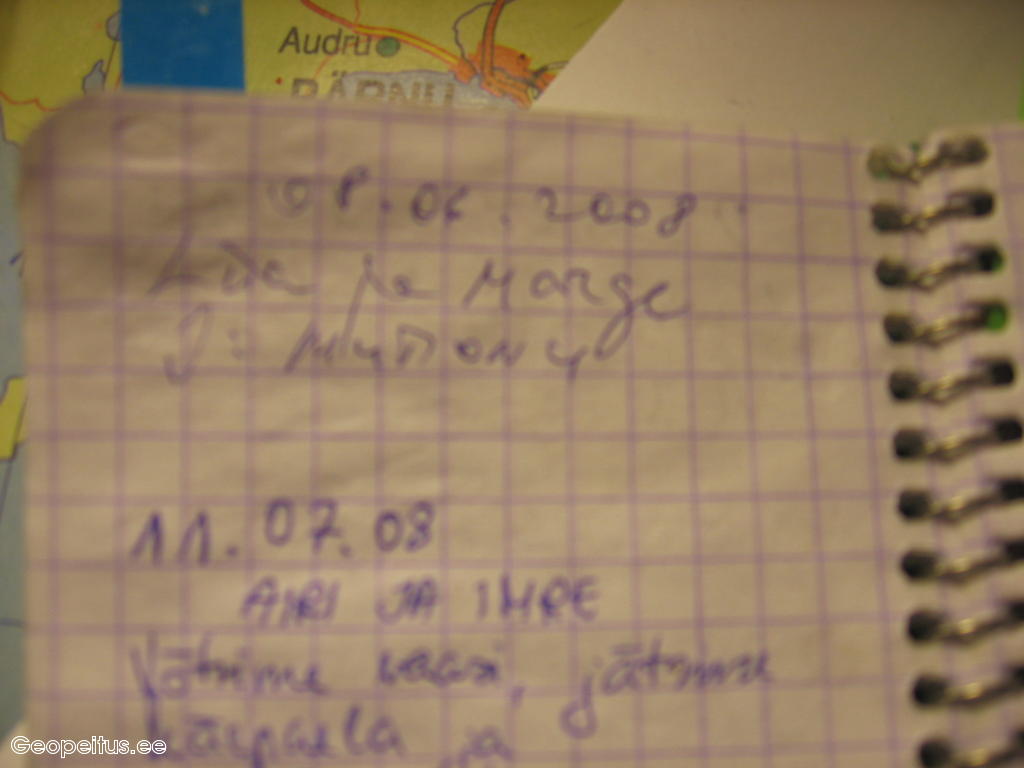 Audru
PÄRNU
08.06.2008
ja Marge
11.07.08
AIRI JA IMRE
Võtsime vaasi, jätsime
käepaela ja
Geopeitus.ee